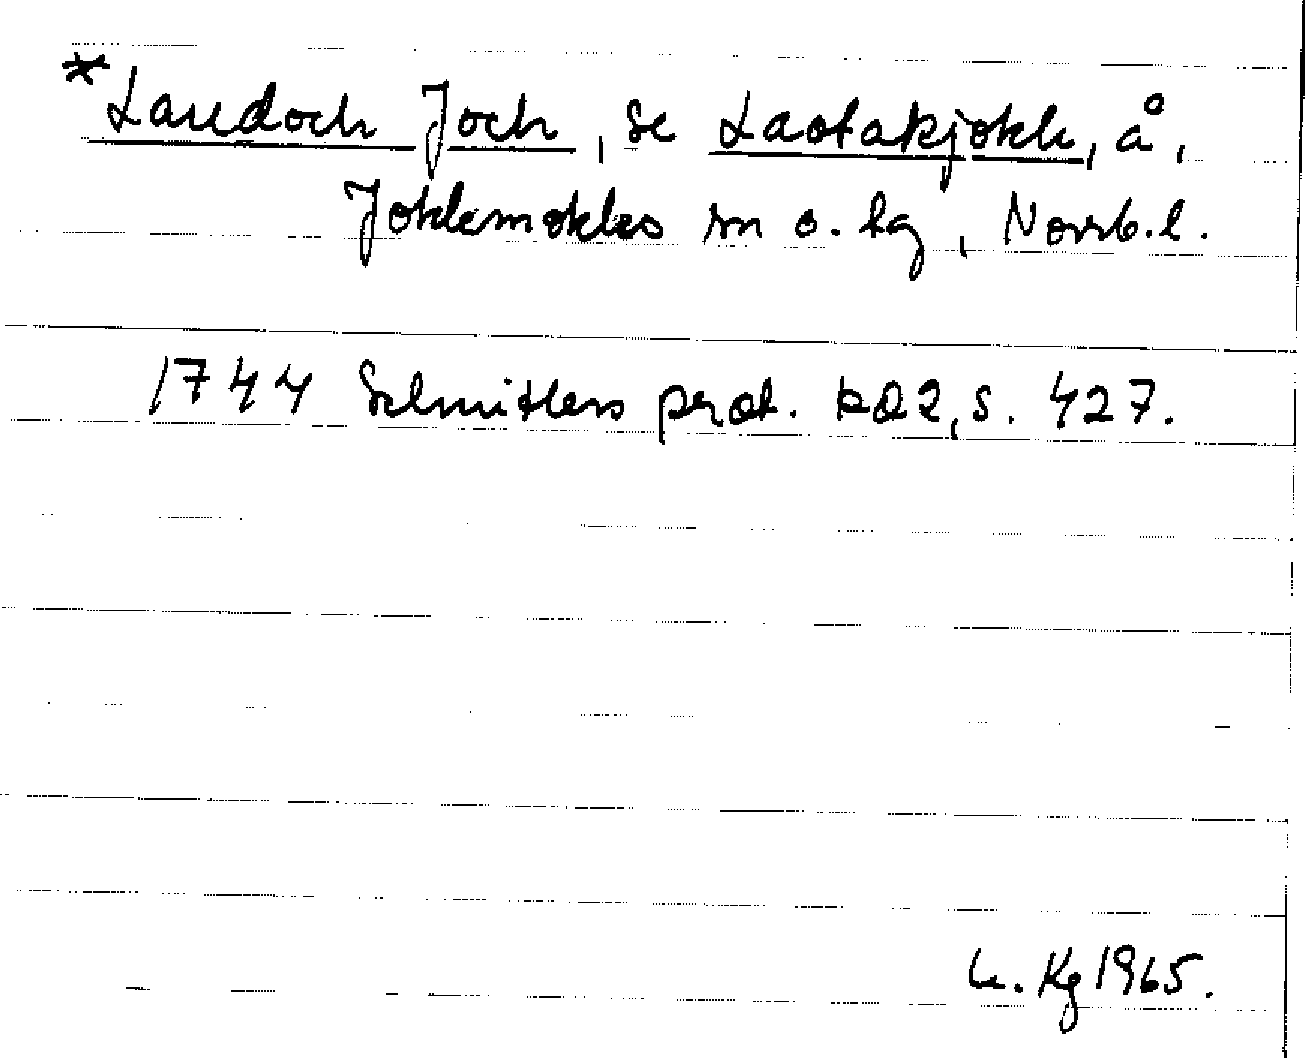 *Laudoch Joch, se Laotakjokk, å,
Jokkmokks sn o. lg, Norrb. l.
1744 Schnitlers prot. RA 2, s. 427.
Kg 1965.